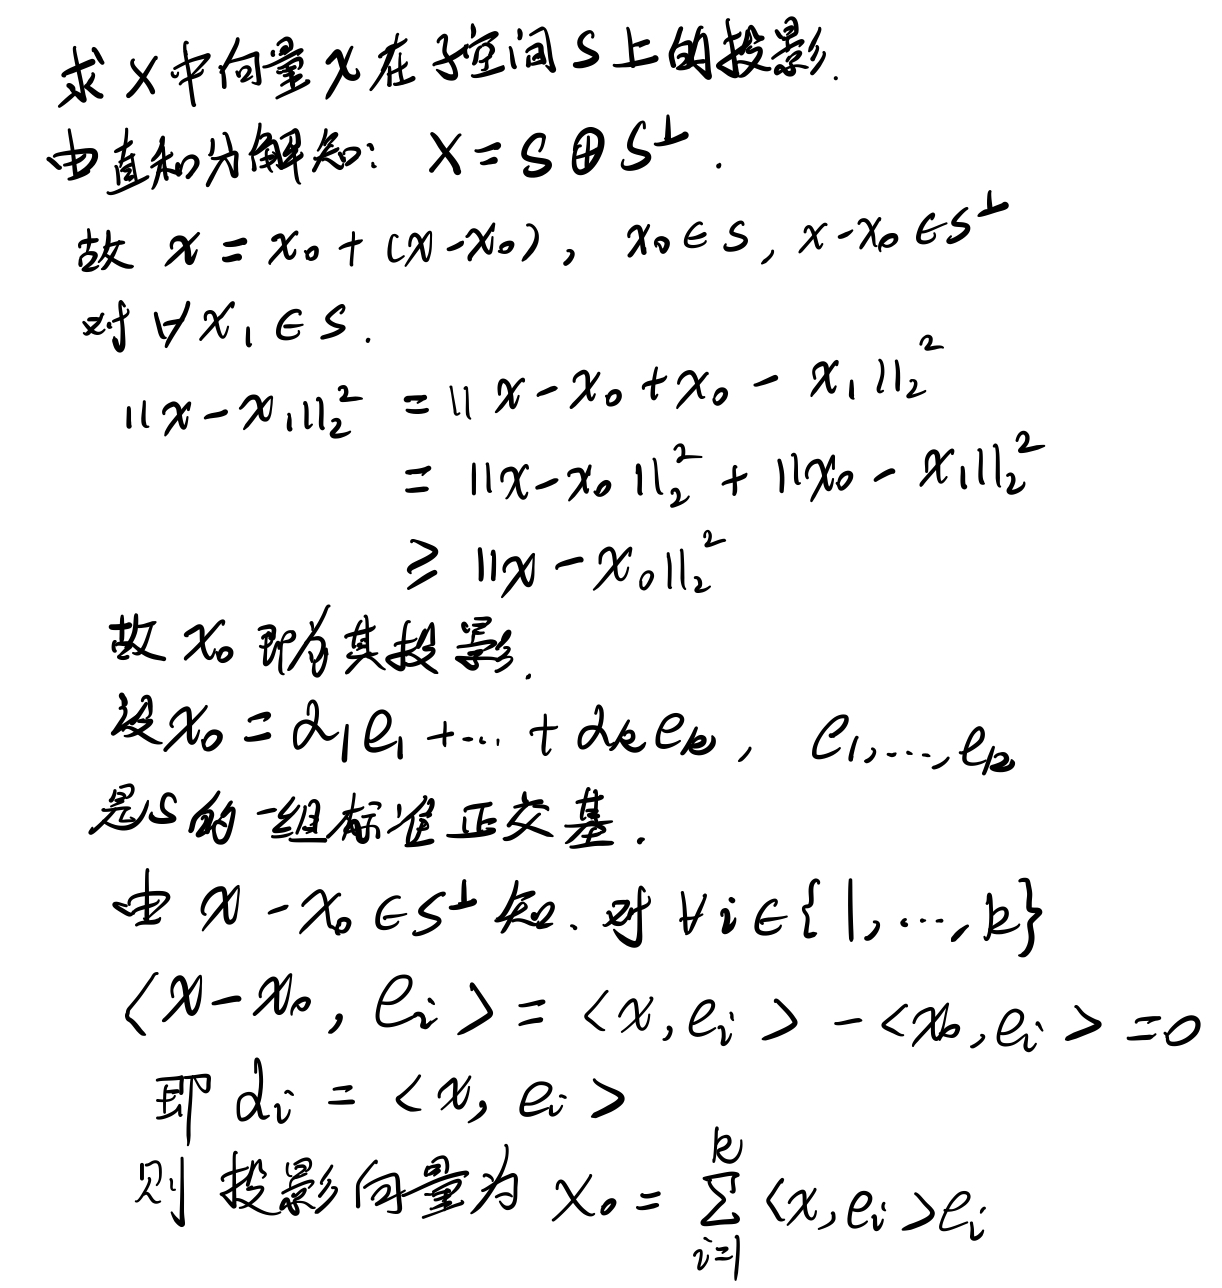 求X中向量x在子空间S上的投影.
由直和分解知: X = S ⊕ S^⊥ .
故 x = x₀ + (x - x₀) , x₀ ∈ S , x - x₀ ∈ S^⊥
对 ∀ x₁ ∈ S .
||x - x₁||₂² = || x - x₀ + x₀ - x₁ ||₂²
= ||x - x₀ ||₂² + ||x₀ - x₁||₂²
≥ ||x - x₀||₂²
故 x₀ 即为其投影.
设 x₀ = α₁e₁ + ... + αₖeₖ , e₁, ..., eₖ
是S的一组标准正交基 .
由 x - x₀ ∈ S^⊥ 知、对 ∀ i ∈ { 1, ..., k}
<x - x₀, eᵢ> = <x, eᵢ> - <x₀, eᵢ> = 0
即 αᵢ = <x, eᵢ>
则 投影向量为 x₀ = ∑_{i=1}^{k} <x, eᵢ>eᵢ